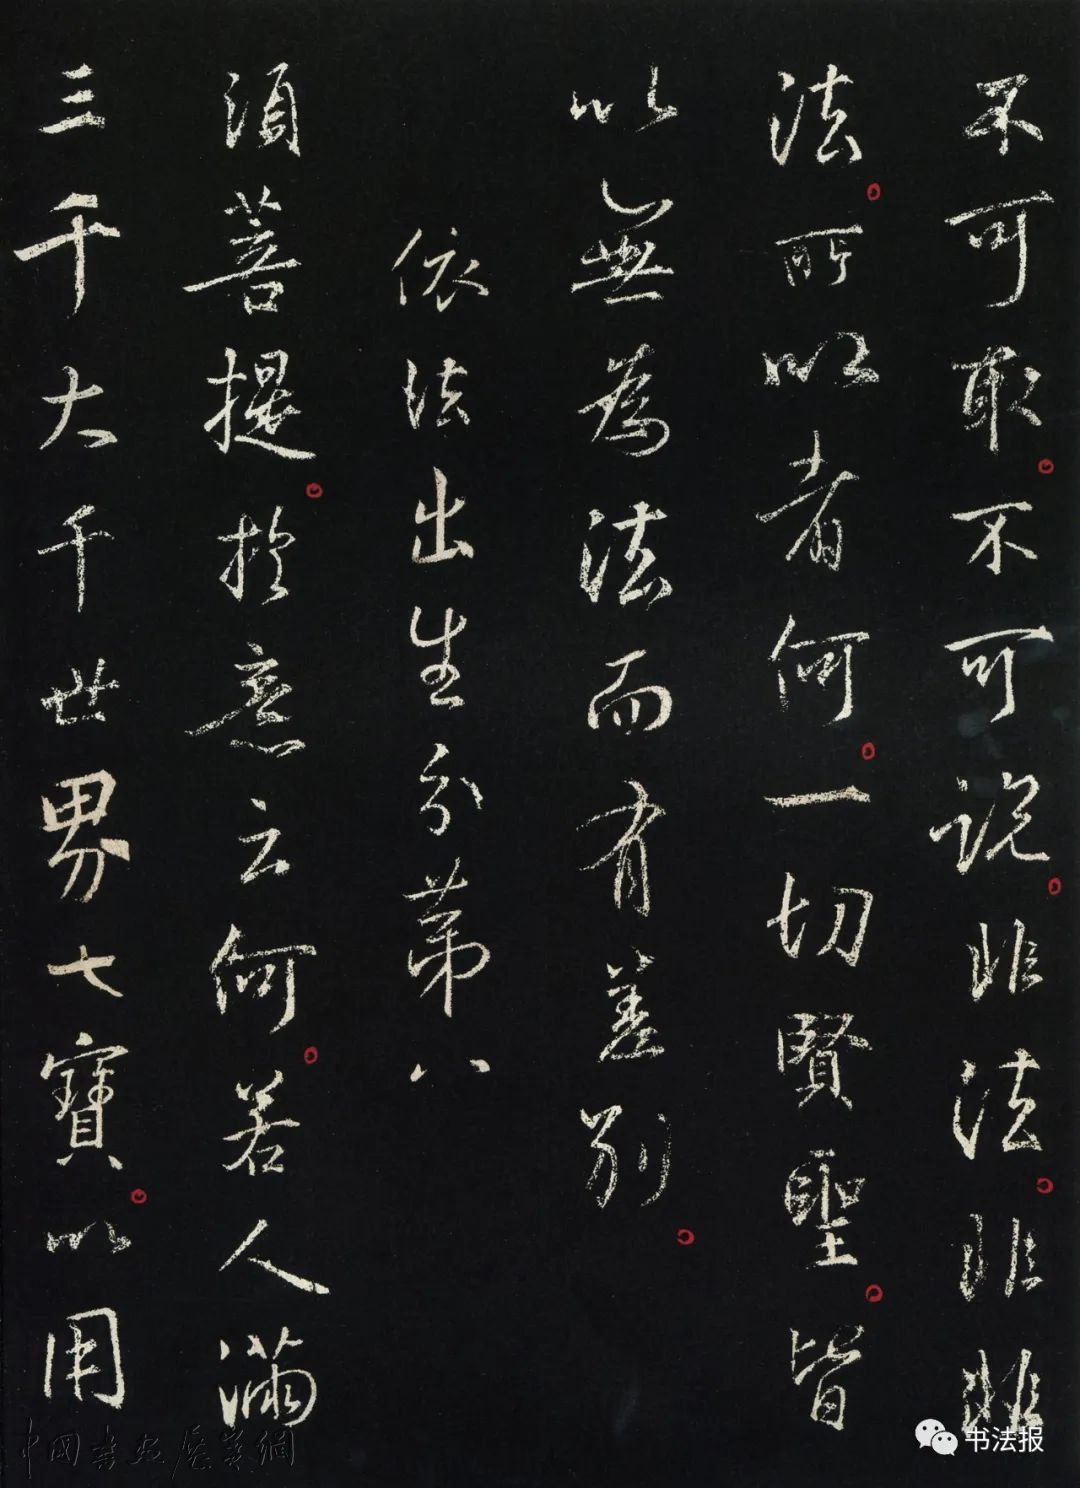 不可取不可說非法非非
法所以者何一切賢聖皆
以無為法而有差別
依法出生分第八
須菩提於意云何若人滿
三千大千世界七寶以用
中国书画展赛网
书法报